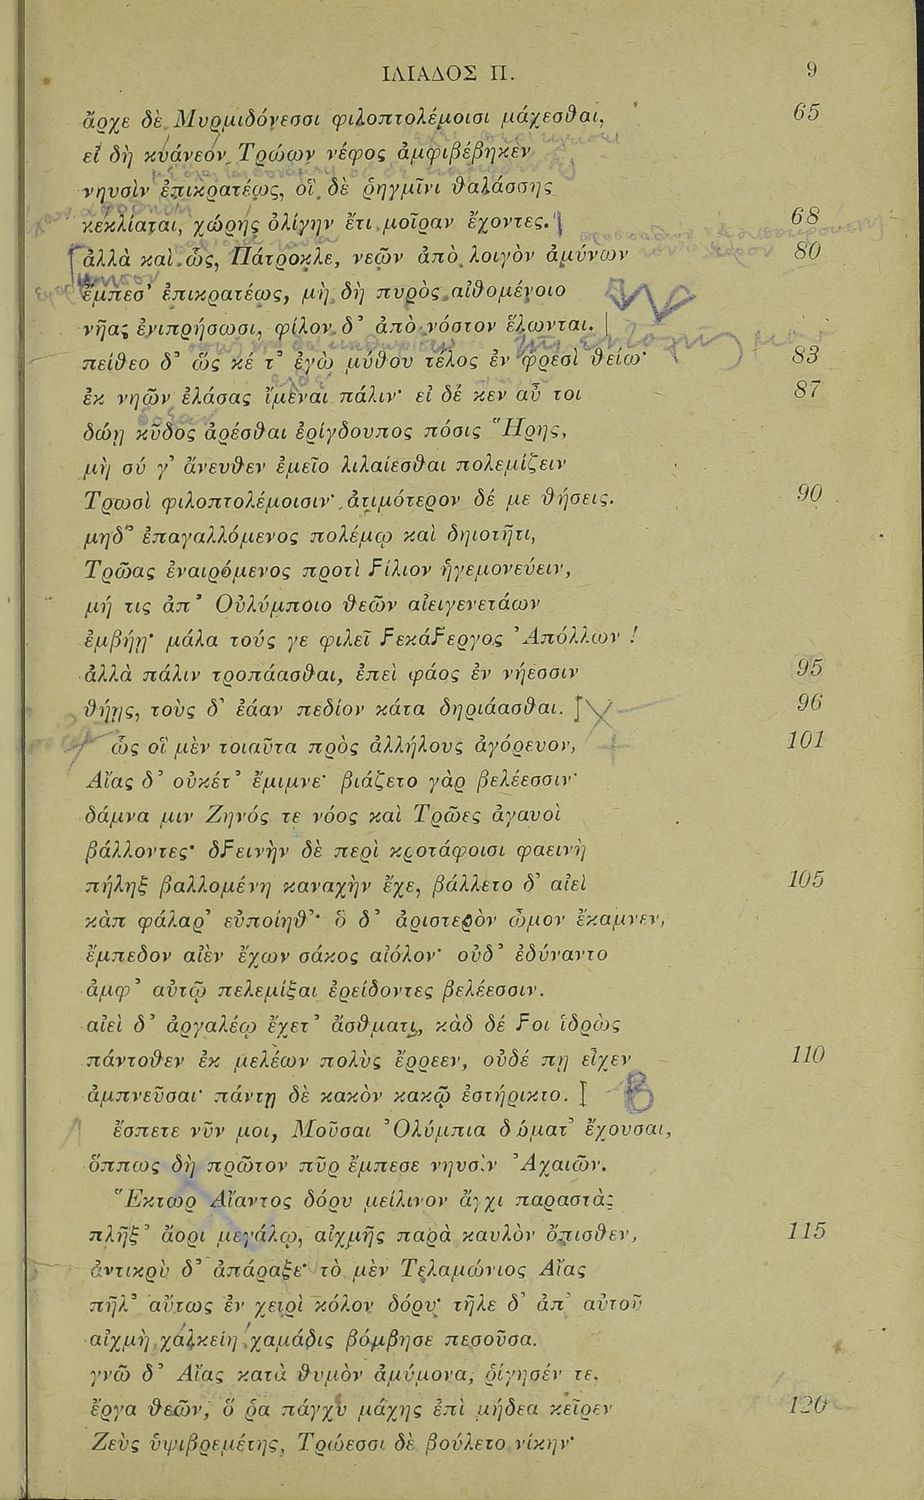 ΙΛΙΑΔΟΣ Π. 9
ἄρχε δὲ Μυρμιδόνεσσι φιλοπτολέμοισι μάχεσθαι, 65
εἰ δὴ κυάνεον Τρώων νέφος ἀμφιβέβηκεν
νηυσὶν ἐπικρατέως, οἳ δὲ ῥηγμῖνι θαλάσσης
κεκλίαται, χώρης ὀλίγην ἔτι μοῖραν ἔχοντες. 68
ἀλλὰ καὶ ὧς, Πάτροκλε, νεῶν ἀπὸ λοιγὸν ἀμύνων 80
ἔμπεσ’ ἐπικρατέως, μὴ δὴ πυρὸς αἰθομένοιο
νῆας ἐνιπρήσωσι, φίλον δ’ ἀπὸ νόστον ἕλωνται.
πείθεο δ’ ὥς κέ τ’ ἐγὼ μύθου τέλος ἐν φρεσὶ θείω· 83
ἐκ νηῶν ἐλάσας ἴμεναι πάλιν· εἰ δέ κεν αὖ τοι 87
δώῃ κῦδος ἀρέσθαι ἐρίγδουπος πόσις Ἥρης,
μὴ σύ γ’ ἄνευθεν ἐμεῖο λιλαίεσθαι πολεμίζειν
Τρωσὶ φιλοπτολέμοισιν· ἀτιμότερον δέ με θήσεις. 90
μηδ’ ἐπαγαλλόμενος πολέμῳ καὶ δηιοτῆτι,
Τρῶας ἐναιρόμενος προτὶ Ϝίλιον ἡγεμονεύειν,
μή τις ἀπ’ Οὐλύμποιο θεῶν αἰειγενετάων
ἐμβήῃ· μάλα τούς γε φιλεῖ ϜεκάϜεργος Ἀπόλλων!
ἀλλὰ πάλιν τροπάασθαι, ἐπεὶ φάος ἐν νήεσσιν 95
θήῃς, τοὺς δ’ ἐάαν πεδίον κάτα δηριάασθαι. 96
ὣς οἳ μὲν τοιαῦτα πρὸς ἀλλήλους ἀγόρευον, 101
Αἴας δ’ οὐκέτ’ ἔμιμνε· βιάζετο γὰρ βελέεσσιν·
δάμνα μιν Ζηνός τε νόος καὶ Τρῶες ἀγαυοὶ
βάλλοντες· δϜεινὴν δὲ περὶ κροτάφοισι φαεινὴ
πήληξ βαλλομένη καναχὴν ἔχε, βάλλετο δ’ αἰεὶ 105
κὰπ φάλαρ’ εὐποίηθ’· ὃ δ’ ἀριστερὸν ὦμον ἔκαμνεν,
ἔμπεδον αἰὲν ἔχων σάκος αἰόλον· οὐδ’ ἐδύναντο
ἀμφ’ αὐτῷ πελεμίξαι ἐρείδοντες βελέεσσιν.
αἰεὶ δ’ ἀργαλέῳ ἔχετ’ ἄσθματι, κὰδ δέ Ϝοι ἱδρὼς
πάντοθεν ἐκ μελέων πολὺς ἔρρεεν, οὐδέ πῃ εἶχεν 110
ἀμπνεῦσαι· πάντῃ δὲ κακὸν κακῷ ἐστήρικτο. B
ἔσπετε νῦν μοι, Μοῦσαι Ὀλύμπια δώματ’ ἔχουσαι,
ὅππως δὴ πρῶτον πῦρ ἔμπεσε νηυσὶν Ἀχαιῶν.
Ἕκτωρ Αἴαντος δόρυ μείλινον ἄγχι παραστὰς
πλῆξ’ ἄορι μεγάλῳ, αἰχμῆς παρὰ καυλὸν ὄπισθεν, 115
ἀντικρὺ δ’ ἀπάραξε· τὸ μὲν Τελαμώνιος Αἴας
πῆλ’ αὔτως ἐν χειρὶ κόλον δόρυ· τῆλε δ’ ἀπ’ αὐτοῦ
αἰχμὴ χαλκείη χαμάδις βόμβησε πεσοῦσα.
γνῶ δ’ Αἴας κατὰ θυμὸν ἀμύμονα, ῥίγησέν τε,
ἔργα θεῶν, ὅ ῥα πάγχυ μάχης ἐπὶ μήδεα κεῖρεν 120
Ζεὺς ὑψιβρεμέτης, Τρώεσσι δὲ βούλετο νίκην·